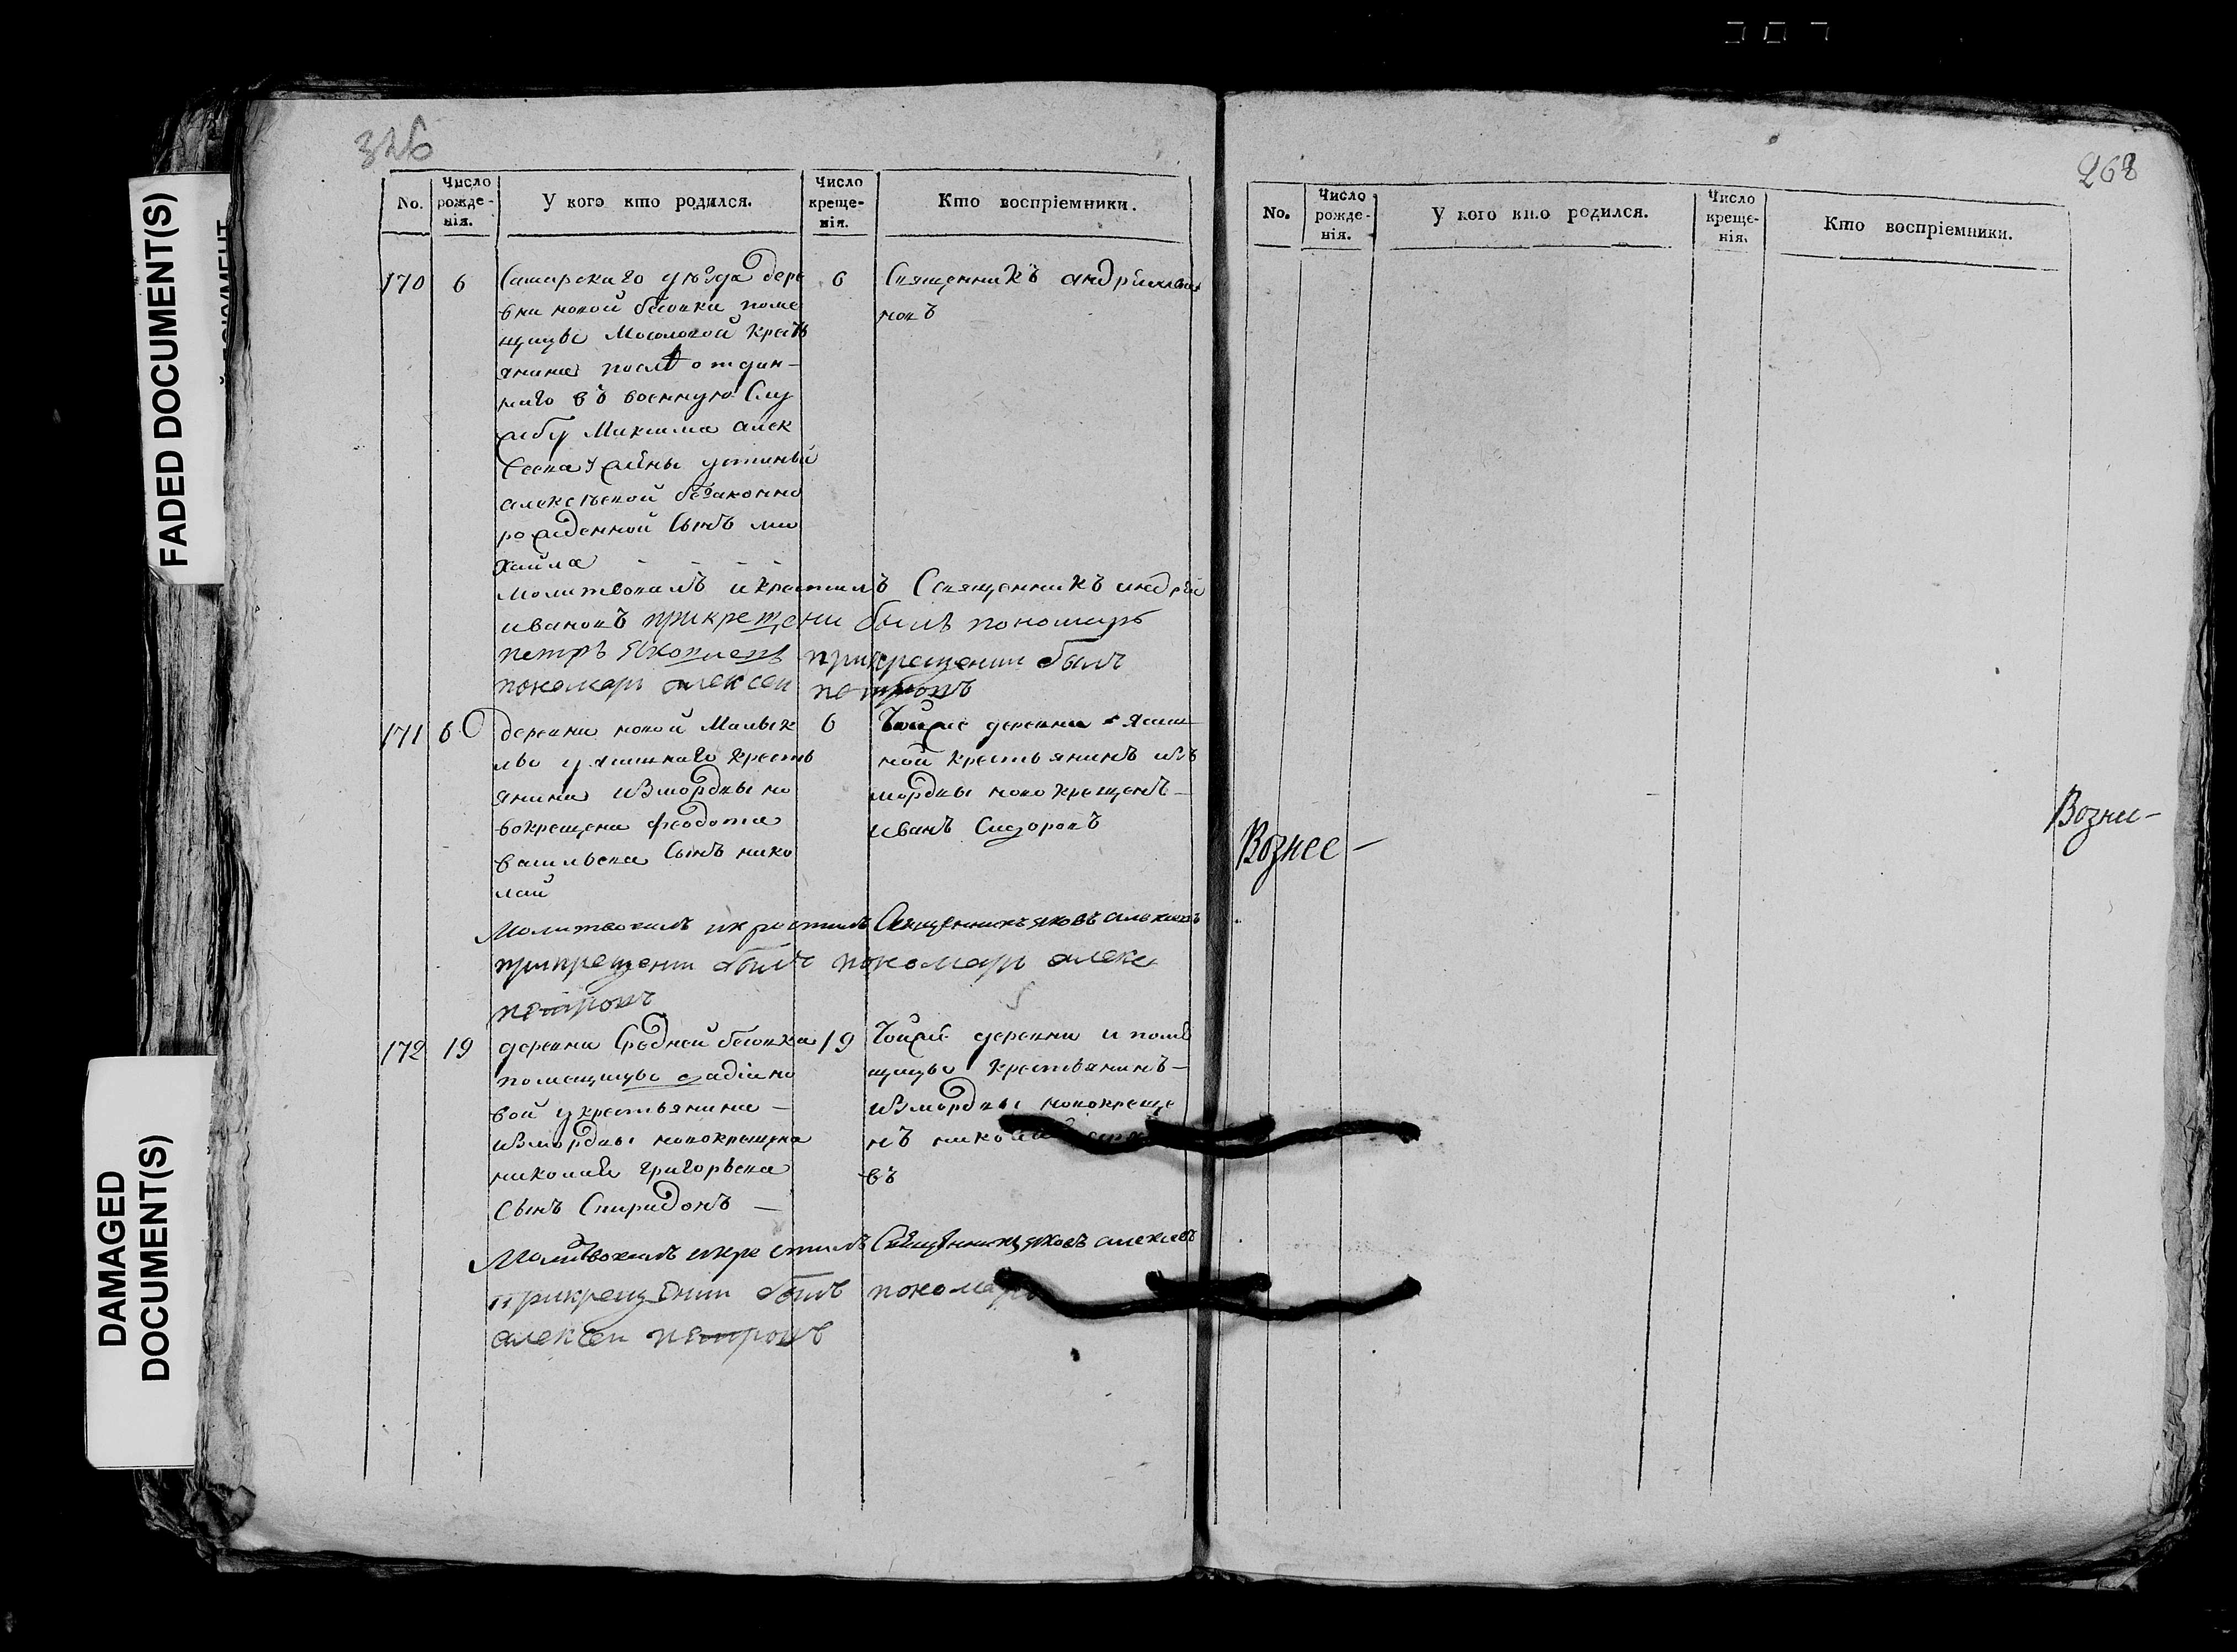 FADED DOCUMENT(S)
DAMAGED
DOCUMENT(S)
326
No.
Число рожде-нія.
У кого кто родился.
Число креще-нія.
Кто воспріемники.
170
6
Самарскаго уѣзда дере
вни новой бесовки поме
щицы Мосоловой кресть
янина после отдан-
наго въ военную слу
жбу Максима алек
сеева жены устиньи
алексѣевой безаконно
рожденной сынъ ми
хайла
6
Священникъ андрей ива
новъ
Молитвовалъ и крестилъ Священникъ андрей
ивановъ прикрещени былъ пономарь
петръ прикрещении былъ
пономарь алексеи петровъ
171
6
деревни новой Малык
лы у ясашнаго кресть
янина измордвы но
вокрещена феодота
васильева сынъ нико
лай
6
тойже деревни ясаш
ной крестьянинъ изъ
мордвы новокрещенъ
иванъ Сидоровъ
Молитвовалъ и крестилъ Священникъ яковъ алексеевъ
прикрещении былъ пономарь алексе
петровъ
172
19
деревни Средней бесовки
помещицы
вой у крестьянина -
измордвы новокрещена
николая григорьева
сынъ Спиридонъ -
19
тойже деревни и поме
щицы крестьянинъ -
измордвы новокреще
нъ николай
въ
Молитвовалъ и крестилъ Священникъ яковъ алексеевъ
прикрещении былъ пономарь
алексеи петровъ
268
No.
Число рожде-нія.
У кого кто родился.
Число креще-нія.
Кто воспріемники.
Вознес-
Возне-